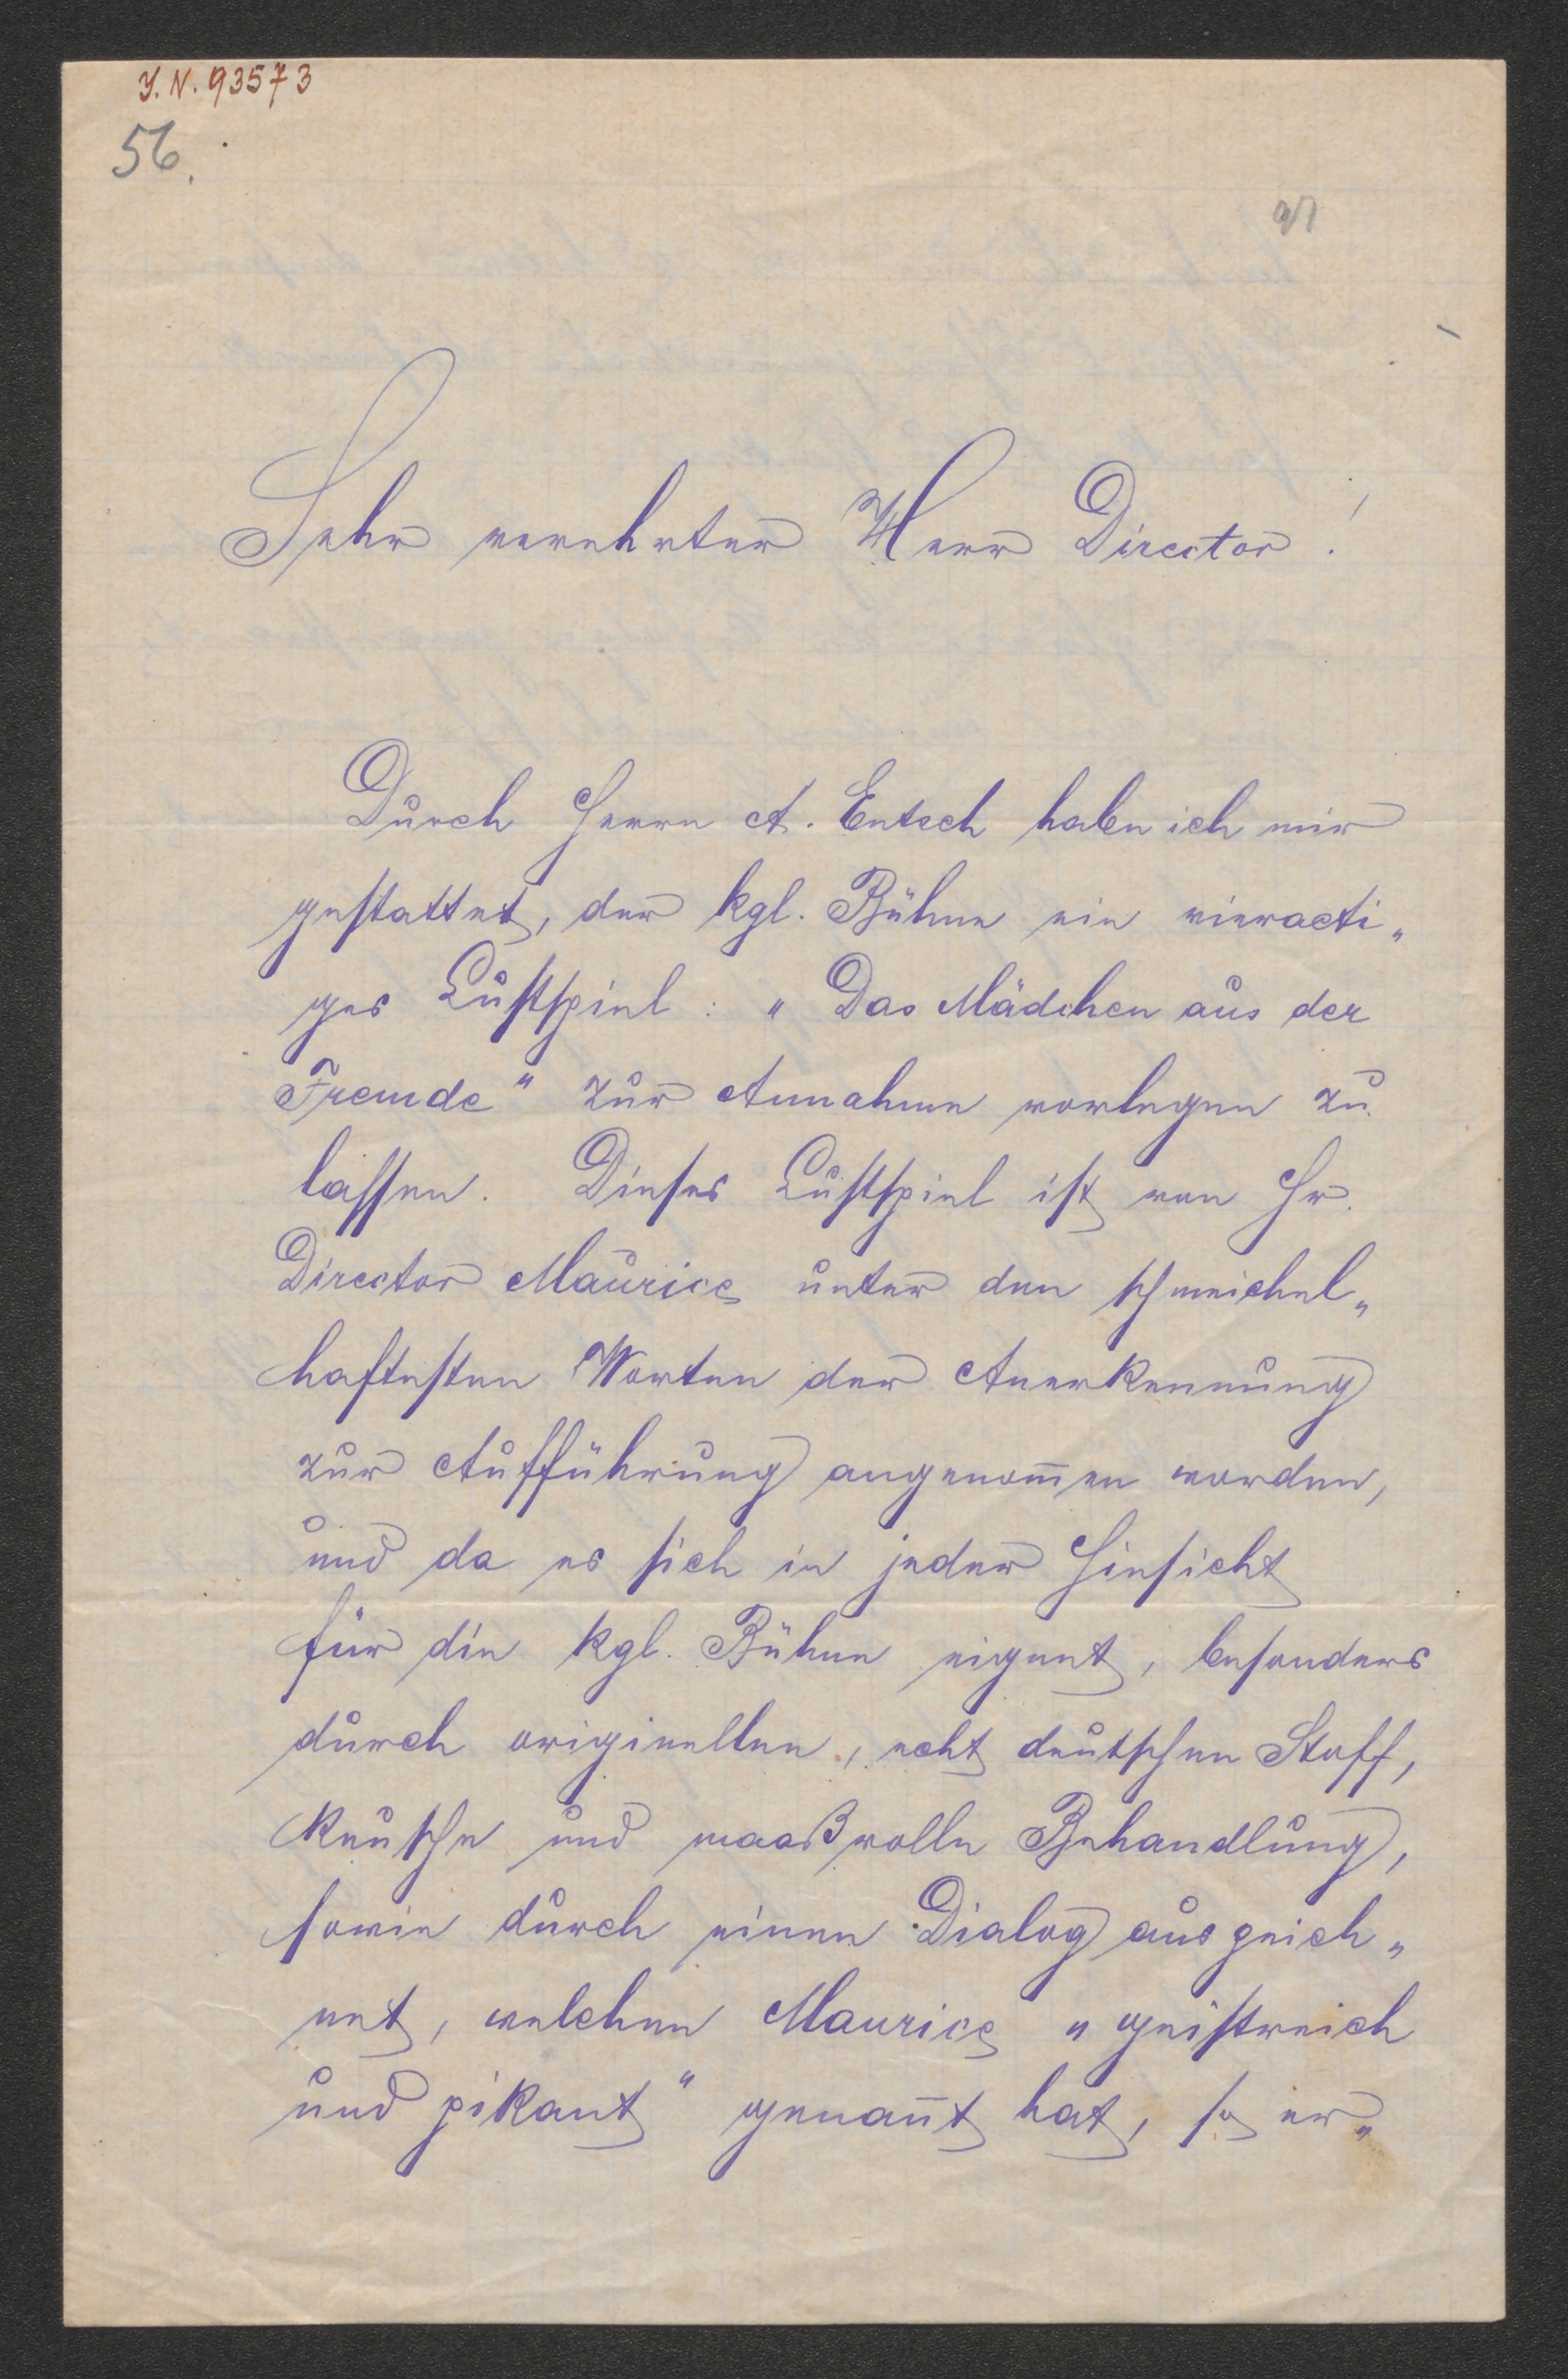 J. N. 93573
56.
Sehr verehrter Herr Director!
Durch Herrn A. Entsch habe ich mir
gestattet, der kgl. Bühne ein vieracti„
ges Lustspiel: „Das Mädchen aus der
Fremde" zur Annahme vorlegen zu
lassen. Dieses Lustspiel ist von Hr.
Director Maurice unter den schmeichel„
haftesten Worten der Anerkennung
zur Aufführung angenom̅en worden,
und da es sich in jeder Hinsicht
für die kgl. Bühne eignet, besonders
durch originellen, echt deutschen Stoff,
keusche und maaßvolle Behandlung,
sowie durch einen Dialog ausgeich„
net, welchen Maurice „geistreich
und pikant" genan̅t hat, so er„